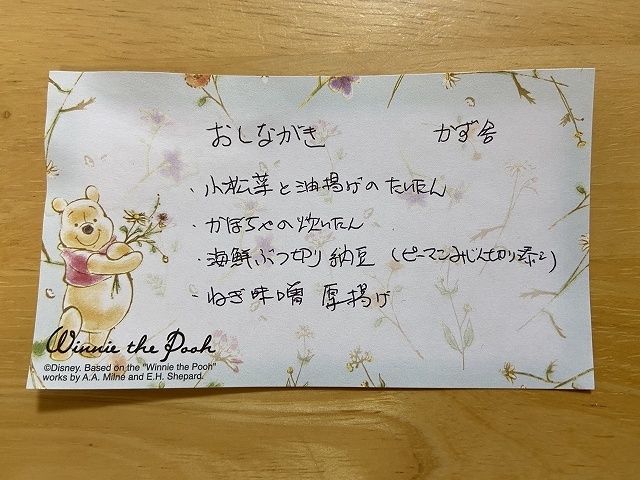 おしながき かず舎
・小松菜と油揚げのたいたん
・かぼちゃの炊いたん
・海鮮ぶつ切り納豆（ピーマンみじん切り添え）
・ねぎ味噌 厚揚げ
Winnie the Pooh
©Disney. Based on the "Winnie the Pooh"
works by A.A. Milne and E.H. Shepard.